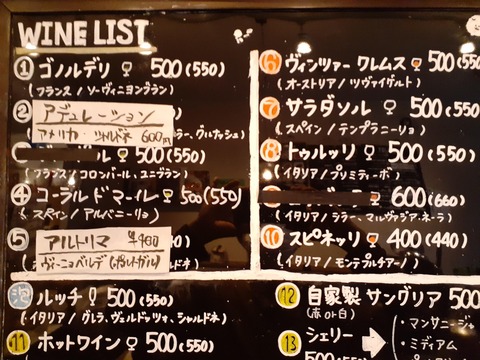 WINE LIST
① ゴノルデリ 500(550)
(フランス / ソーヴィニヨンブラン)
② アデュレーション
アメリカ・シャルドネ 600円
ラー、ヴルデッシュ)
ル 500(550)
(フランス / コロンバール、ユニブラン)
④ コーラルドマール 500(550)
(スペイン / アルバニーリョ)
⑤ アルトリマ ¥400
ヴィーニョベルデ(ポルトガル) ドネ)
泡 ルッチ 500(550)
(イタリア / グレラ、ヴェルドッツォ、シャルドネ)
11 ホットワイン 500(550)
⑥ ヴィンツァー クレムス 500(550)
(オーストリア / ツヴァイゲルト)
⑦ サラダソル 500(55
(スペイン / テンプラニーリョ)
⑧ トゥルッリ 500(550)
(イタリア / プリミティーボ)
600(660)
(イタリア / ララー、マルヴァジア・ネーラ)
⑩ スピネッリ 400(440)
(イタリア / モンテプルチアーノ)
12 自家製 サングリア 500
(赤 or 白)
13 シェリー
500(550)
・マンサニージャ
・ミディアム